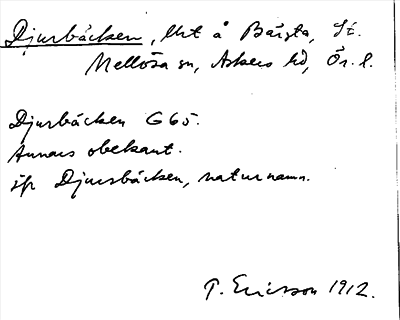 Djurbäcken, lht å Bärsta, St.
Mellösa sn, Askers hd, Ör. l.
Djurbäcken G65.
Annars obekant.
jfr Djursbäcken, naturnamn.
T. Ericsson 1912.